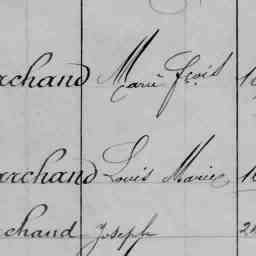 rchand Marie fçois 1
archand Louis Marie 1
chand Joseph 2